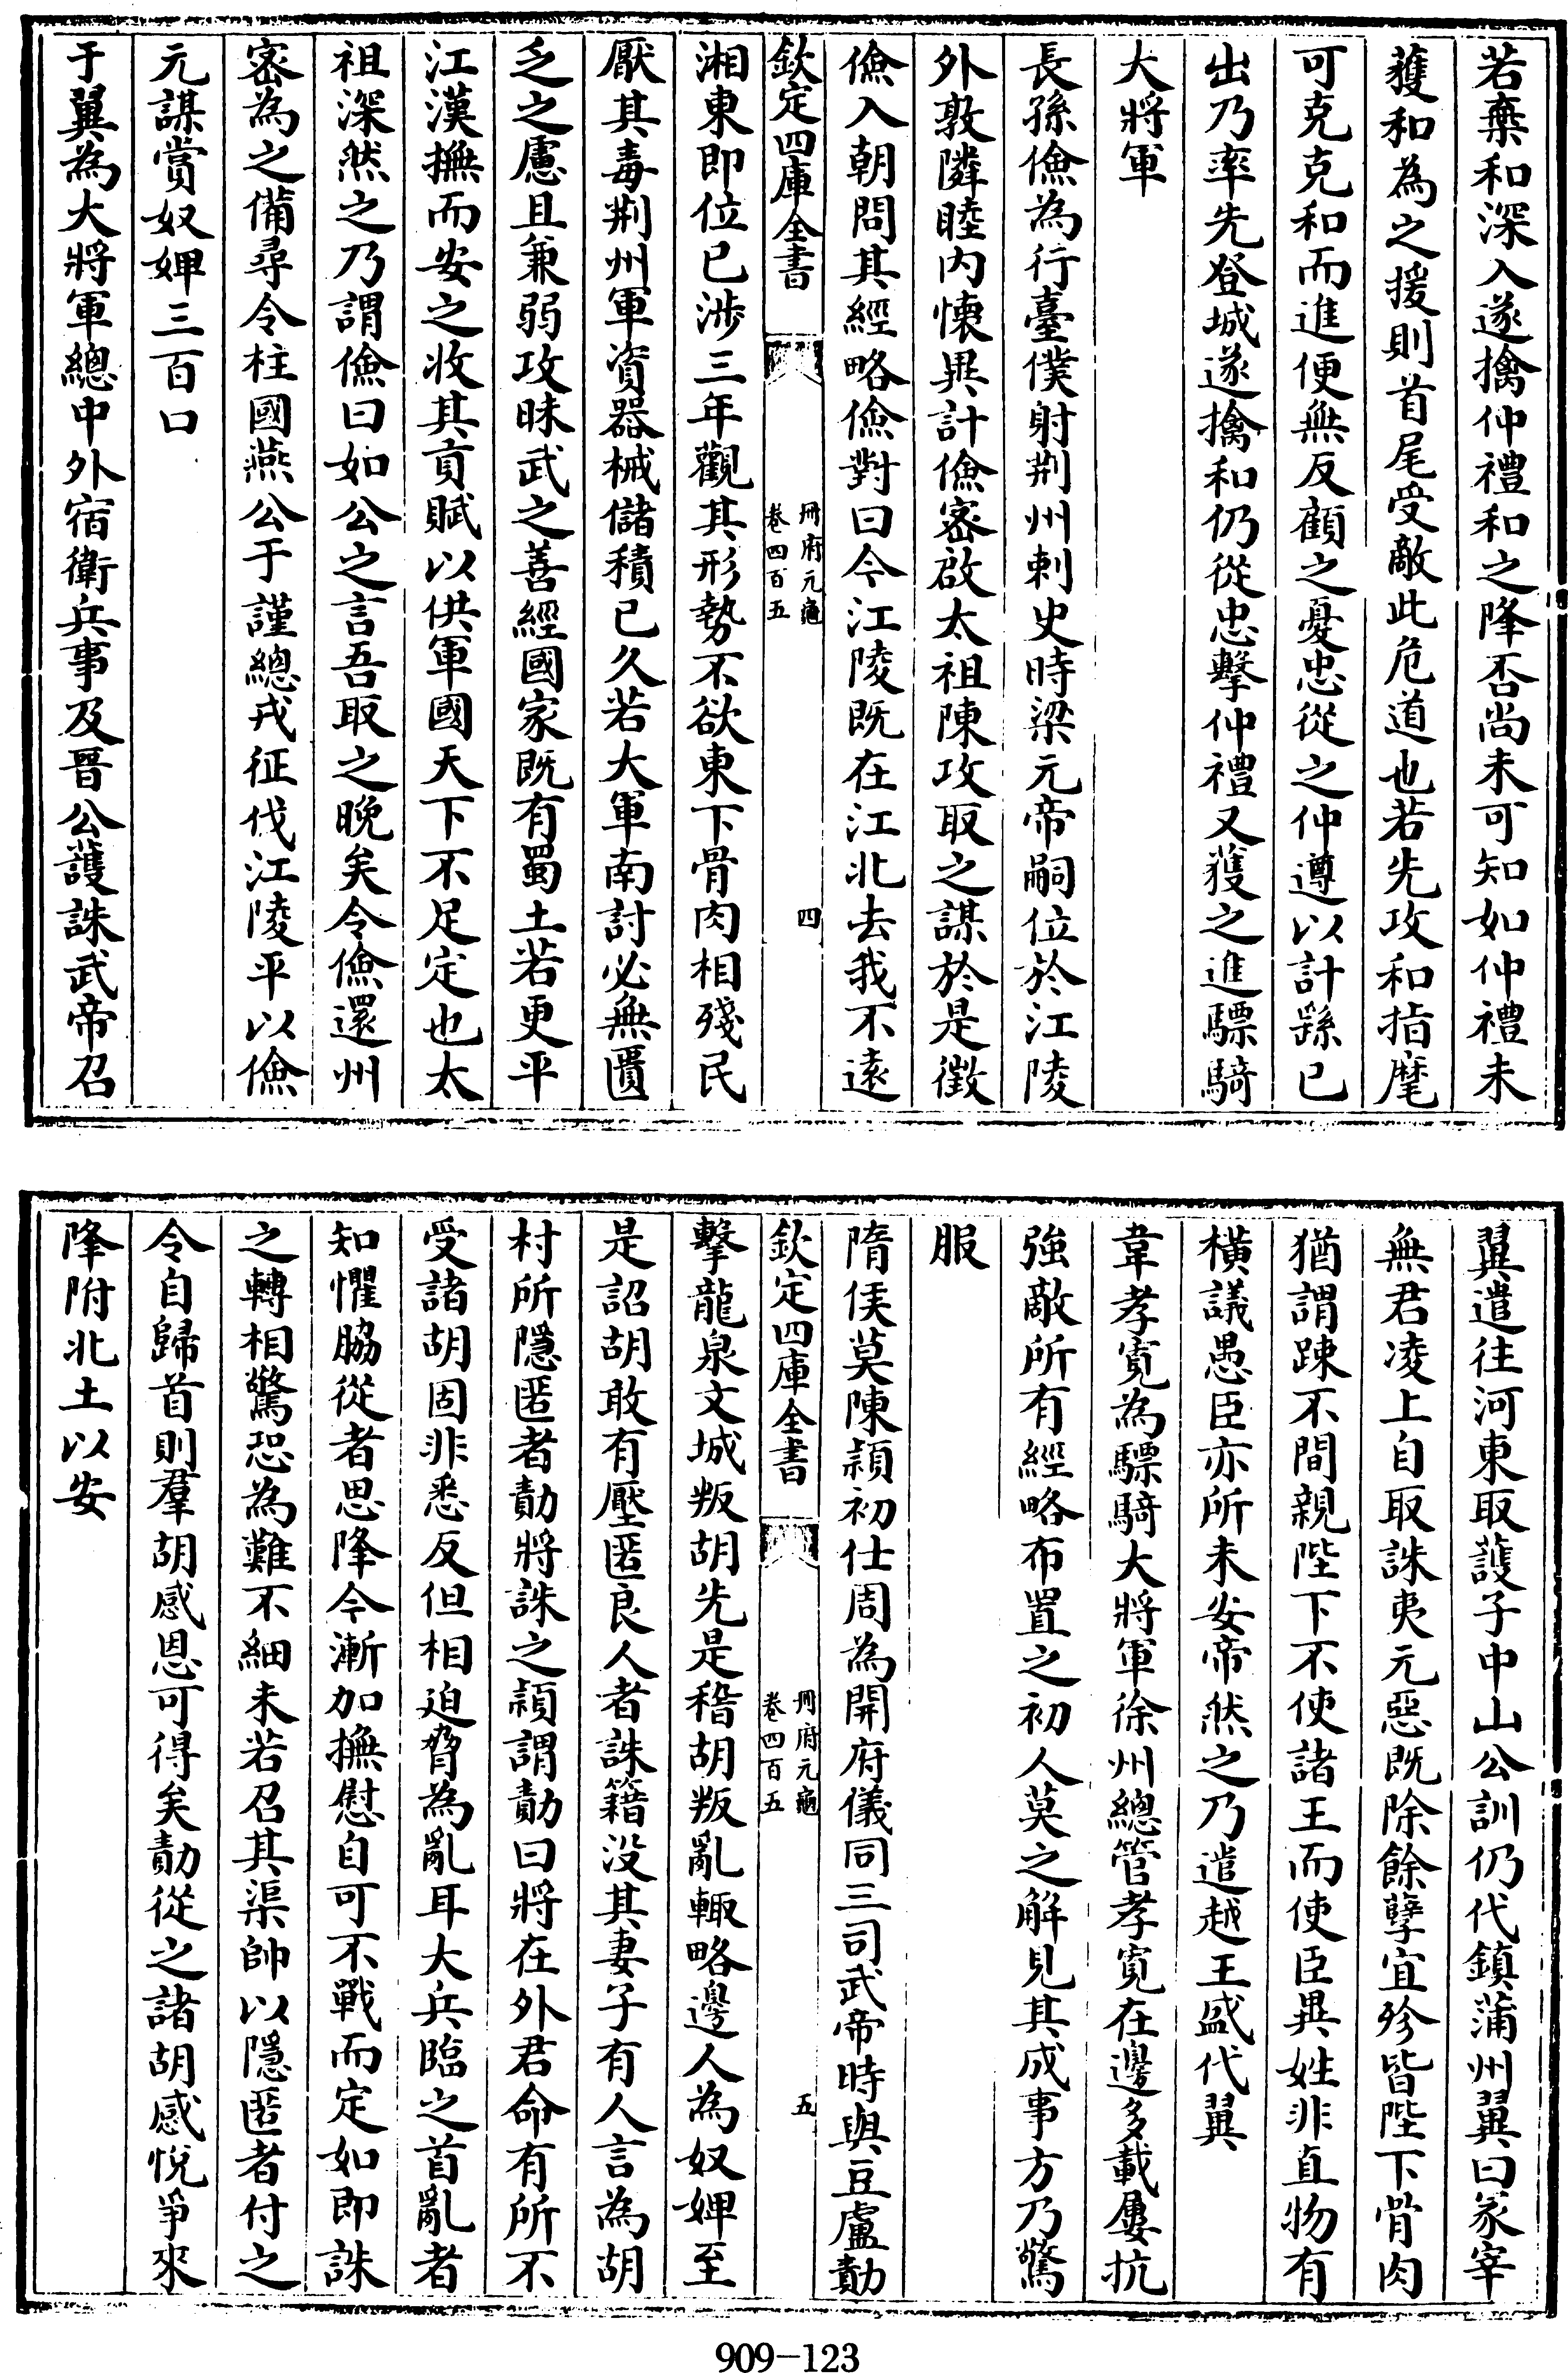 若棄和深入遂擒仲禮和之降否尚未可知如仲禮未
獲和為之援則首尾受敵此危道也若先攻和指麾
可克克和而進便無反顧之憂忠從之仲遵以計縣已
出乃率先登城遂擒和仍從忠擊仲禮又獲之進驃騎
大將軍
長孫儉為行臺僕射荆州刺史時梁元帝嗣位於江陵
外敦隣睦内懐異計儉宻啟太祖陳攻取之謀於是徵
儉入朝問其經略儉對曰今江陵既在江北去我不逺
欽定四庫全書
冊府元龜
卷四百五
四
湘東即位已涉三年觀其形勢不欲東下骨肉相殘民
厭其毒荆州軍資器械儲積已久若大軍南討必無匱
乏之慮且兼弱攻昧武之善經國家既有蜀土若更平
江漢撫而安之收其貢賦以供軍國天下不足定也太
祖深然之乃謂儉曰如公之言吾取之晚矣令儉還州
宻為之備尋令柱國燕公于謹總戎征伐江陵平以儉
元謀賞奴婢三百口
于翼為大將軍總中外宿衛兵事及晉公護誅武帝召
翼遣往河東取護子中山公訓仍代鎮蒲州翼曰冢宰
無君凌上自取誅夷元惡既除餘孽宜殄皆陛下骨肉
猶謂踈不間親陛下不使諸王而使臣異姓非直物有
橫議愚臣亦所未安帝然之乃遣越王盛代翼
韋孝寛為驃騎大將軍徐州總管孝寛在邊多載屢抗
強敵所有經略布置之初人莫之解見其成事方乃驚
服
隋侯莫陳頴初仕周為開府儀同三司武帝時與豆盧勣
欽定四庫全書
冊府元龜
卷四百五
五
擊龍泉文城叛胡先是稽胡叛亂輙略邊人為奴婢至
是詔胡敢有壓匿良人者誅籍没其妻子有人言為胡
村所隱匿者勣將誅之頴謂勣曰將在外君命有所不
受諸胡固非悉反但相迫脅為亂耳大兵臨之首亂者
知懼脇從者思降今漸加撫慰自可不戰而定如即誅
之轉相驚恐為難不細未若召其渠帥以隱匿者付之
令自歸首則羣胡感恩可得矣勣從之諸胡感悅爭來
降附北土以安
909-123